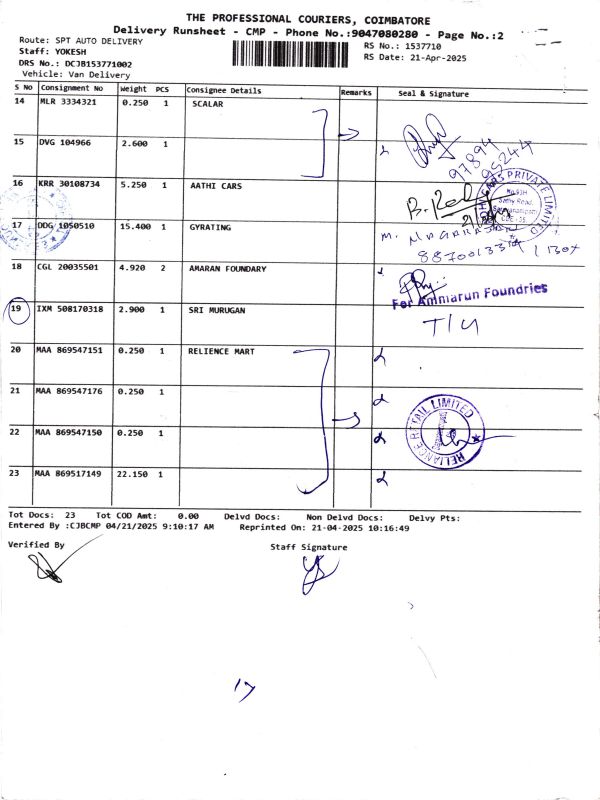 THE PROFESSIONAL COURIERS, COIMBATORE
Delivery Runsheet - CMP - Phone No.:9047080280 - Page No.:2
Route: SPT AUTO DELIVERY
RS No.: 1537710
Staff: YOKESH
RS Date: 21-Apr-2025
DRS No.: DCJB153771002
Vehicle: Van Delivery
S No Consignment No Weight PCS Consignee Details Remarks Seal & Signature
14 MLR 3334321 0.250 1 SCALAR
15 DVG 104966 2.600 1
97894
95244
16 KRR 30108734 5.250 1 AATHI CARS
PRIVATE LIMITED
17 DDG 1050510 15.400 1 GYRATING
18 CGL 20035501 4.920 2 AMARAN FOUNDARY
For Ammarun Foundries
19 IXM 508170318 2.900 1 SRI MURUGAN
20 MAA 869547151 0.250 1 RELIENCE MART
21 MAA 869547176 0.250 1
RELIANCE RETAIL LIMITED
22 MAA 869547150 0.250 1
23 MAA 869517149 22.150 1
Tot Docs: 23 Tot COD Amt: 0.00 Delvd Docs: Non Delvd Docs: Delvy Pts:
Entered By :CJBCMP 04/21/2025 9:10:17 AM Reprinted On: 21-04-2025 10:16:49
Verified By
Staff Signature
17